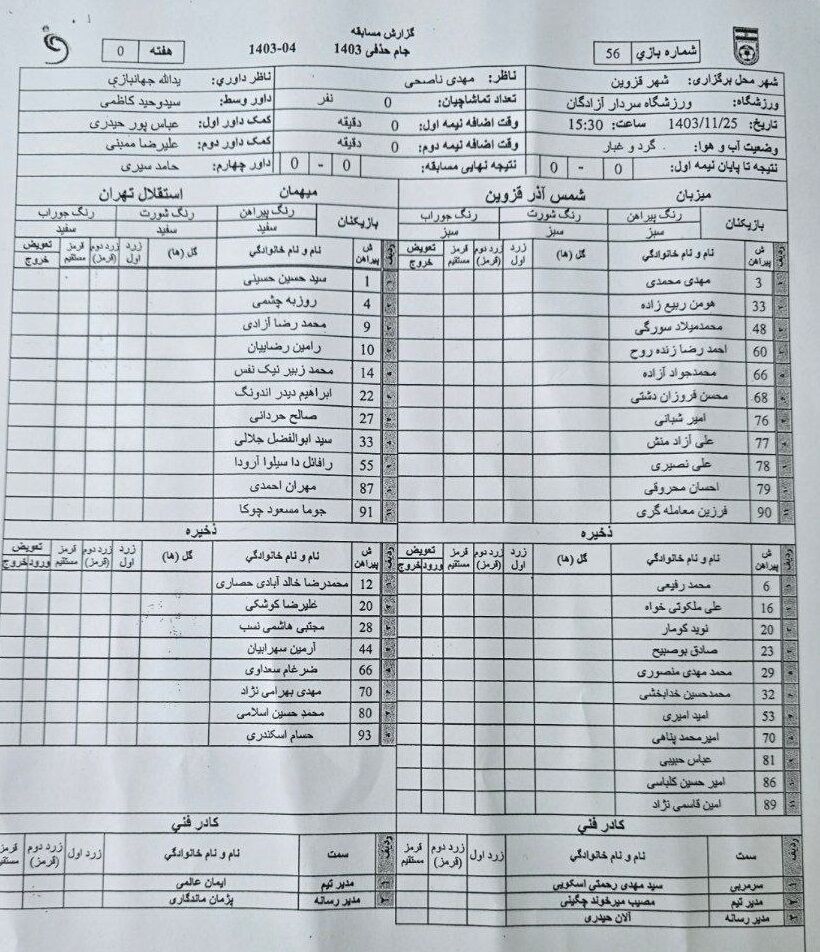 گزارش مسابقه
جام حذفی 1403 1403-04
شماره بازي 56
هفته 0
شهر محل برگزاري: شهر قزوین
ناظر: مهدی ناصحی
ناظر داوري: یدالله جهانبازي
ورزشگاه: ورزشگاه سردار آزادگان
تعداد تماشاچیان: 0 نفر
داور وسط: سیدوحید کاظمی
تاریخ: 1403/11/25 ساعت: 15:30
وقت اضافه نیمه اول: 0 دقیقه
کمک داور اول: عباس پور حیدری
وضعیت آب و هوا: گرد و غبار
وقت اضافه نیمه دوم: 0 دقیقه
کمک داور دوم: علیرضا ممبنی
نتیجه تا پایان نیمه اول: 0 - 0
نتیجه نهایی مسابقه: 0 - 0
داور چهارم: حامد سیری
میزبان شمس آذر قزوین
بازیکنان
رنگ پیراهن رنگ شورت رنگ جوراب
سبز سبز سبز
ردیف ش پیراهن نام و نام خانوادگي گل (ها) زرد اول زرد دوم (قرمز) قرمز مستقیم تعویض خروج
3 مهدی محمدی
33 هومن ربیع زاده
48 محمدمیلاد سورگی
60 احمد رضا زنده روح
66 محمدجواد آزاده
68 محسن فروزان دشتی
76 امیر شبانی
77 علی آزاد منش
78 علی نصیری
79 احسان محروقی
90 فرزین معامله گری
ذخیره
ردیف ش پیراهن نام و نام خانوادگي گل (ها) زرد اول زرد دوم (قرمز) قرمز مستقیم تعویض ورود خروج
6 محمد رفیعی
16 علی ملکوتی خواه
20 نوید کومار
23 صادق بوصبیح
29 محمد مهدی منصوری
32 محمدحسین خدابخشی
53 امید امیری
70 امیرمحمد پناهی
81 عباس حبیبی
86 امیر حسین کلباسی
89 امین قاسمی نژاد
کادر فني
ردیف سمت نام و نام خانوادگي زرد اول زرد دوم (قرمز) قرمز مستقیم
سرمربی سید مهدی رحمتی اسکویی
مدیر تیم مصیب میرخوند چگینی
مدیر رسانه آلان حیدری
میهمان استقلال تهران
بازیکنان
رنگ پیراهن رنگ شورت رنگ جوراب
سفید سفید سفید
ردیف ش پیراهن نام و نام خانوادگي گل (ها) زرد اول زرد دوم (قرمز) قرمز مستقیم تعویض خروج
1 سید حسین حسینی
4 روزبه چشمی
9 محمد رضا آزادی
10 رامین رضاییان
14 محمد زبیر نیک نفس
22 ابراهیم دیدر اندونگ
27 صالح حردانی
33 سید ابوالفضل جلالی
55 رافائل دا سیلوا آرودا
87 مهران احمدی
91 جوما مسعود چوکا
ذخیره
ردیف ش پیراهن نام و نام خانوادگي گل (ها) زرد اول زرد دوم (قرمز) قرمز مستقیم تعویض ورود خروج
12 محمدرضا خالد آبادی حصاری
20 علیرضا کوشکی
28 مجتبی هاشمی نسب
44 آرمین سهرابیان
66 ضرغام سعداوی
70 مهدی بهرامی نژاد
80 محمد حسین اسلامی
93 حسام اسکندری
کادر فني
ردیف سمت نام و نام خانوادگي زرد اول زرد دوم (قرمز) قرمز مستقیم
مدیر تیم ایمان عالمی
مدیر رسانه پژمان ماندگاری